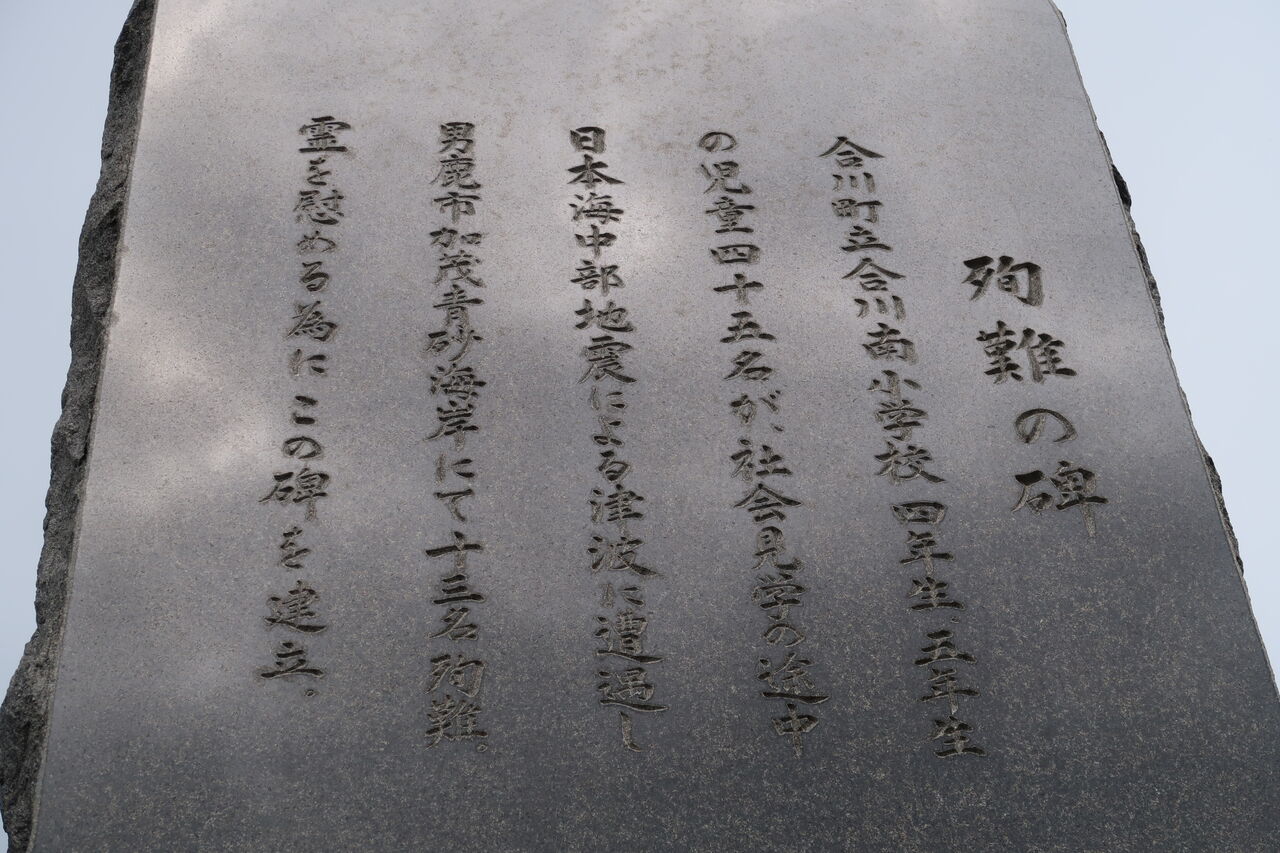 殉難の碑
合川町立合川南小学校四年生、五年生
の児童四十五名が、社会見学の途中
日本海中部地震による津波に遭遇し
男鹿市加茂青砂海岸にて十三名殉難。
霊を慰める為にこの碑を建立。